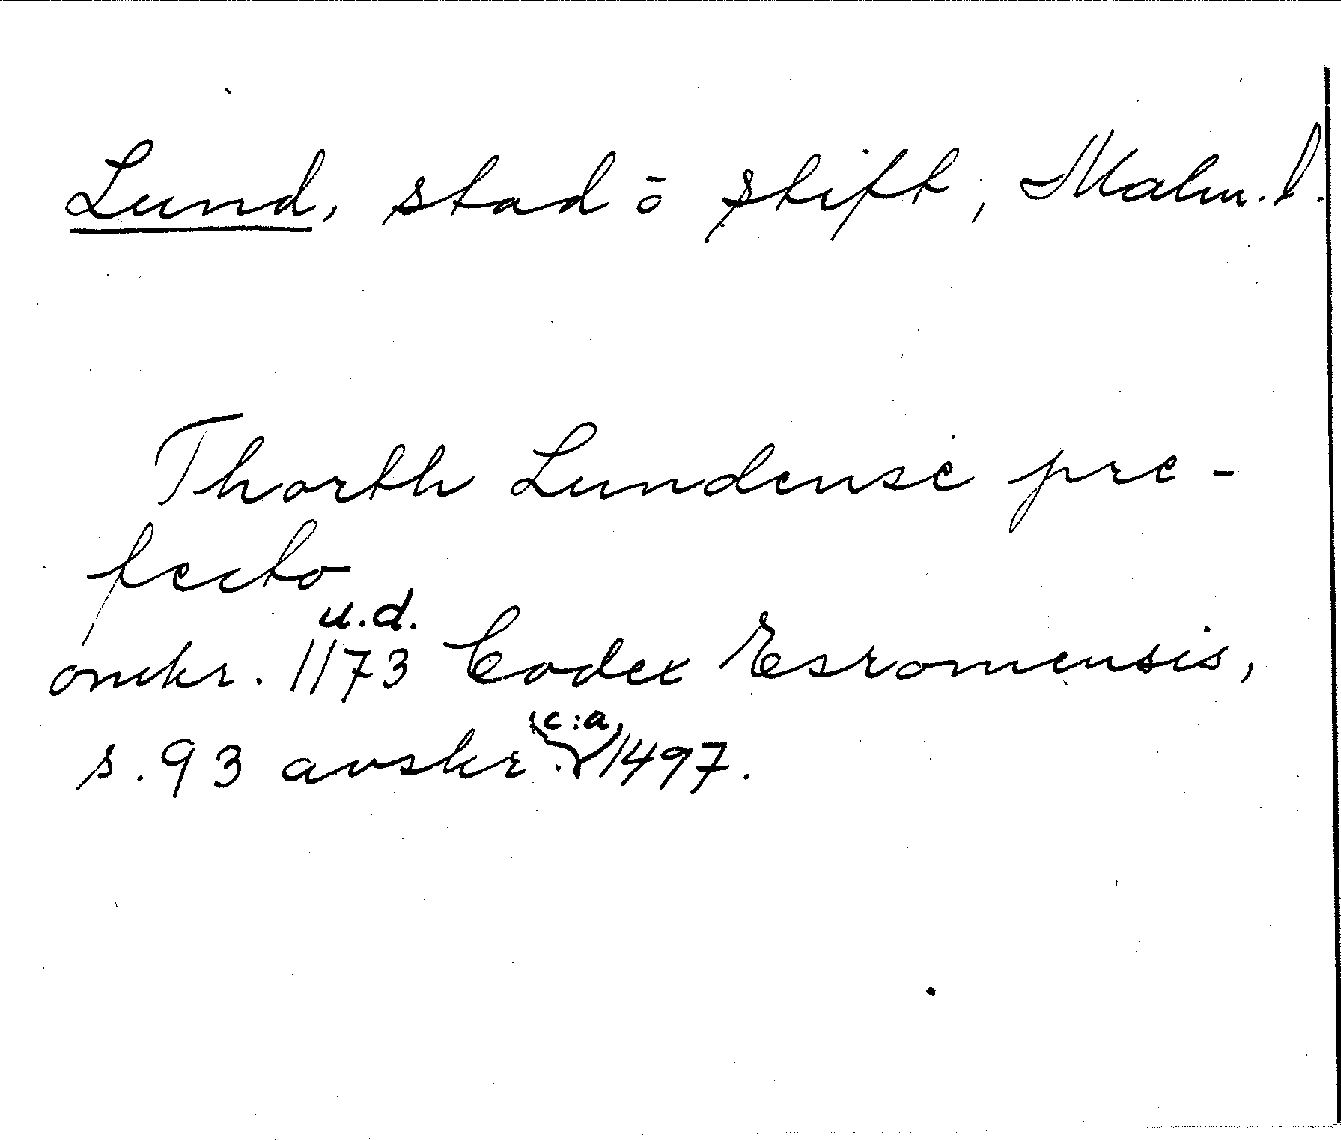 Lund, stad ō stift, Malm. l.
Thorth Lundense pre-
fecto
u.d.
omkr. 1173 Codex Esromensis,
c:a
s. 93 avskr. 1497.